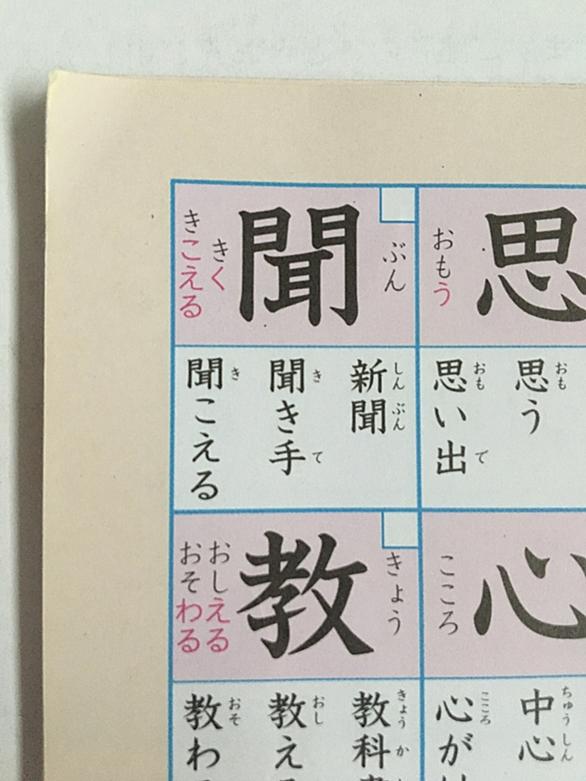 思
おもう
思う
おも
思い出
おも
で
聞
ぶん
きく
きこえる
新聞
しんぶん
聞き手
き
て
聞こえる
き
心
こころ
中心
ちゅうしん
心が
こころ
教
きょう
おしえる
おそわる
教科
きょうか
教え
おし
教わ
おそ